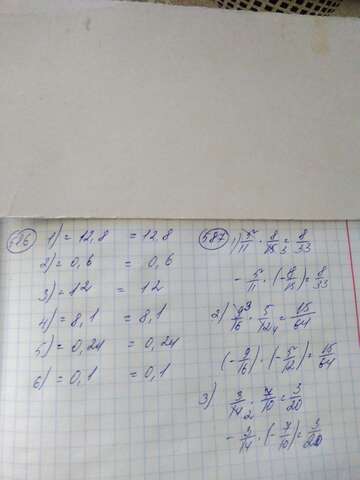 586 1) = 12,8 = 12,8
2) = 0,6 = 0,6
3) = 12 = 12
4) = 8,1 = 8,1
5) = 0,24 = 0,24
6) = 0,1 = 0,1
587 1) 5/11 · 8/15 3 = 8/33
- 5/11 · (- 8/15) = 8/33
2) 9 3/16 · 5/12 4 = 15/64
(- 9/16) · (- 5/12) = 15/64
3) 3/14 2 · 7/10 = 3/20
- 3/14 · (- 7/10) = 3/20